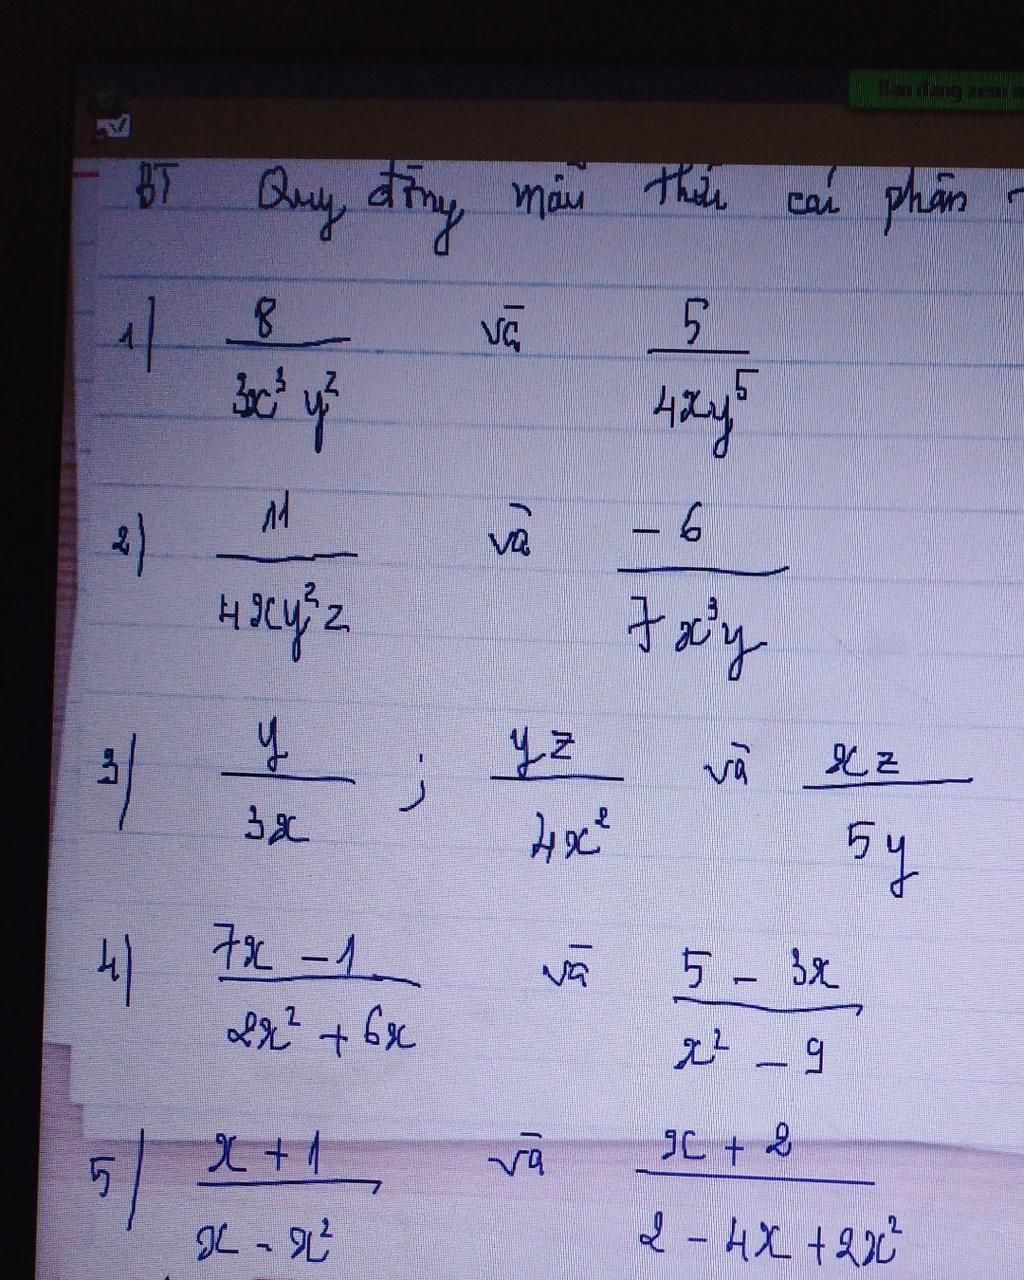 Bạn đang xem m
BT Quy đồng mẫu thức các phân t
1) 8/(3x³y²) và 5/(4xy⁵)
2) 11/(4xy²z) và -6/(7x³y)
3) y/(3x) ; yz/(4x²) và xz/(5y)
4) (7x - 1)/(2x² + 6x) và (5 - 3x)/(x² - 9)
5) (x + 1)/(x - x²) và (x + 2)/(2 - 4x + 2x²)